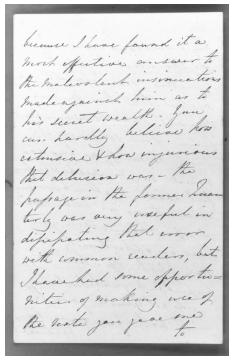 because I have found it a
most effective answer to
the malevolent insinuations
made against him as to
his secret wealth. You
can hardly believe how
extensive & how injurious
that delusion was – the
passage in the former Quar
terly was very useful in
dissipating that error
with common readers, but
I have had some opportu=
nities of making use of
the note you gave me
to